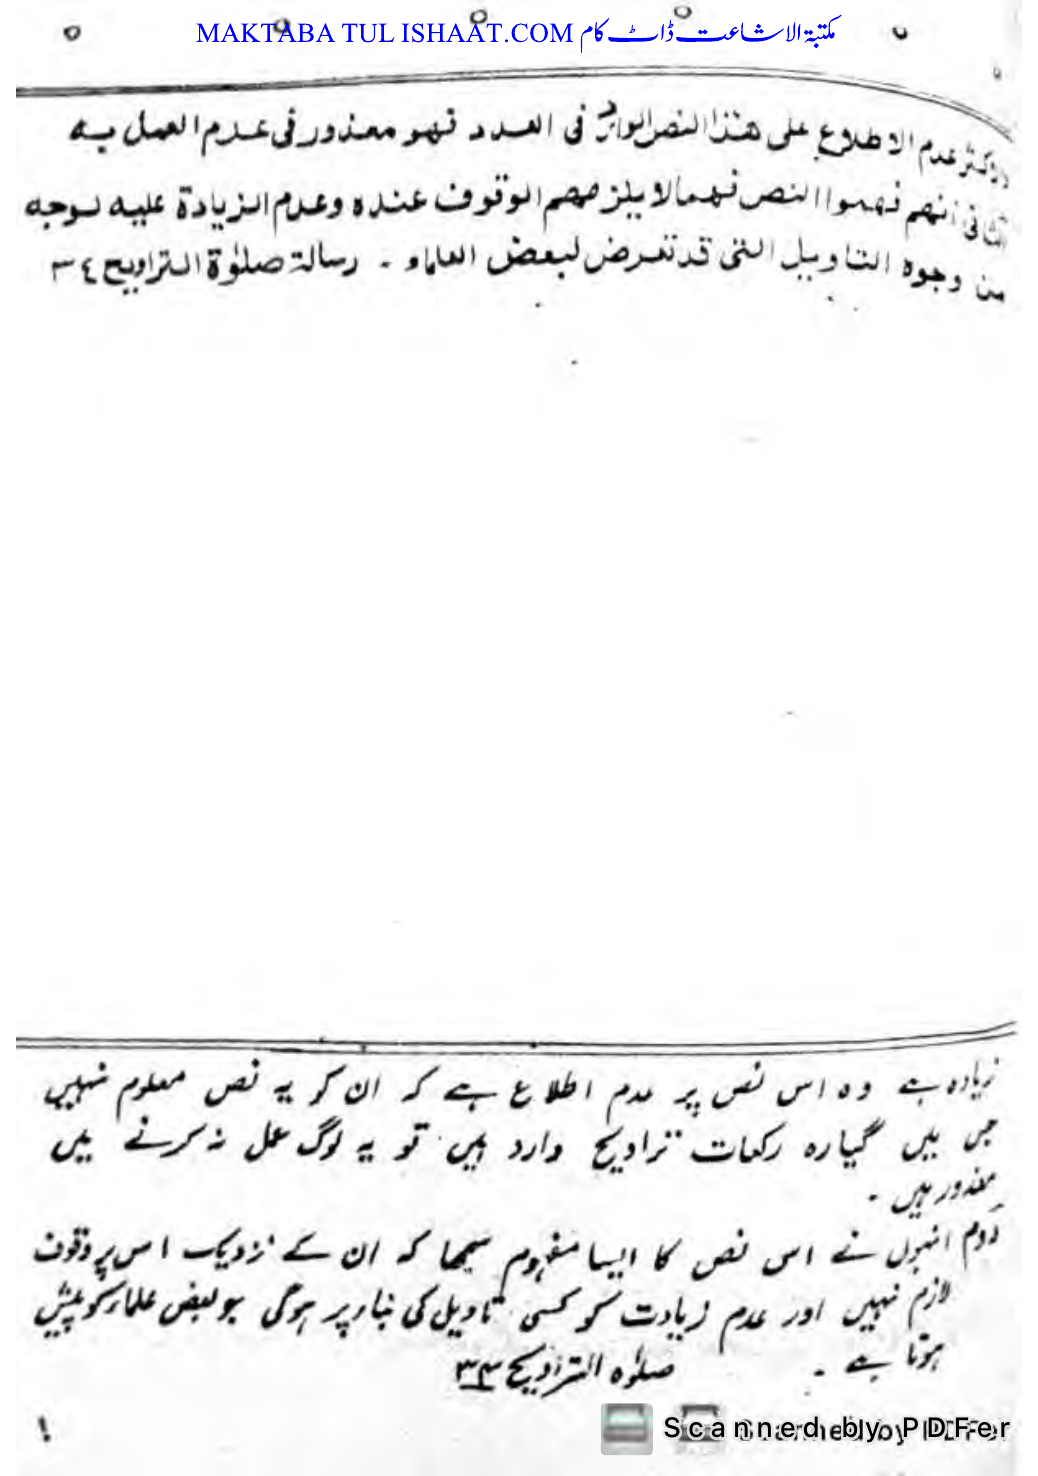 MAKTABA TUL ISHAAT.COM مکتبۃ الاشاعت ڈاٹ کام
عدم الاطلاع على هذا النص الوارد فى العدد فهو معذور فى عدم العمل به
الثانى انهم فهموا النص فهما لا يلزمهم الوقوف عنده وعدم الزيادة عليه لوجه
من وجوه التاويل التى قد تعرض لبعض العلماء - رسالة صلوٰة التراويح ٣٤
زیادہ ہے وہ اس نص پر عدم اطلاع ہے کہ ان کو یہ نص معلوم نہیں
جس میں گیارہ رکعات تراویح وارد ہیں تو یہ لوگ عمل نہ کرنے میں
معذور ہیں ۔
دوم انہوں نے اس نص کا ایسا مفہوم سمجھا کہ ان کے نزدیک اس پر وقوف
لازم نہیں اور عدم زیادت کو کسی تاویل کی بناء پر ہوگی جو بعض علماء کو پیش
ہوتا ہے ۔ صلوٰہ التراویح
Scanned by PDFer